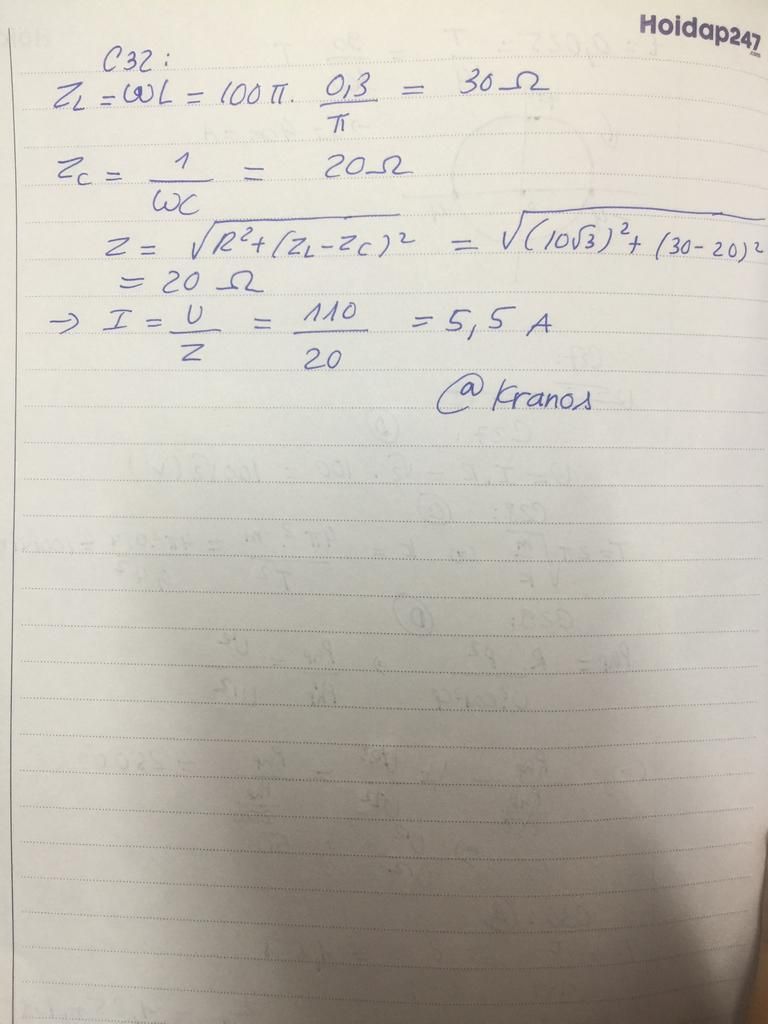 Hoidap247
.com
C32:
Z_L = ωL = 100π. 0,3/π = 30 Ω
Z_C = 1/ωC = 20Ω
Z = √(R² + (Z_L - Z_C)²) = √((10√3)² + (30-20)²)
= 20 Ω
→ I = U/Z = 110/20 = 5,5 A
@Kranos